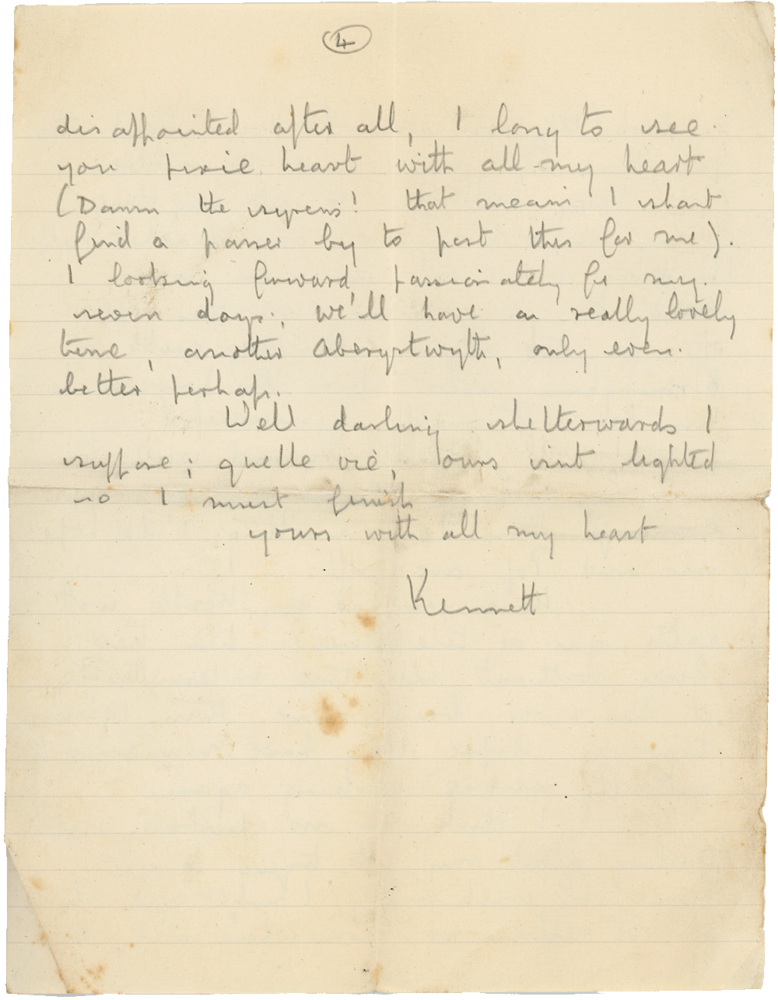 4
disappointed after all, I long to see
you pixie heart with all my heart
(Damn the syrens! that means I shant
find a passer by to post this for me).
I looking forward passionately for my
seven days; we'll have a really lovely
time, another Aberystwyth, only even
better perhaps.
Well darling shelterwards I
suppose; quelle vie, ours isnt lighted
so I must finish
yours with all my heart
Kennett